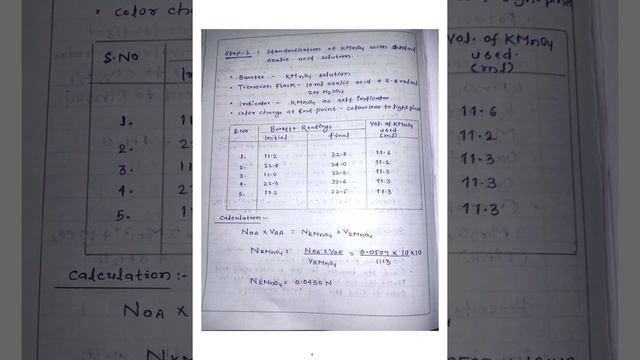 Step-2 : Standardization of KMnO4 with
oxalic acid solution.
• Burette - KMnO4 solution
• Titration Flask - 10 ml oxalic acid +
2N H2SO4
• Indicator - KMnO4 as self Indicator
• color change at End point - colourless to light pink
S.No Burette Readings Vol. of KMnO4
Initial final used
(ml)
1. 11.2 22.8 11.6
2. 22.8 34.0 11.2
3. 11.0 22.3 11.3
4. 22.3 33.6 11.3
5. 11.2 22.5 11.3
Calculation :-
NOA × VOA = NKMnO4 × VKMnO4
NKMnO4 = NOA × VOA = 0.0509 × 10
VKMnO4 11.3
NKMnO4 = 0.0450 N
• color cha
S.No
1.
2.
3.
4.
5.
Calculation :-
NOA ×
Vol. of KMnO4
used.
(ml)
11.6
11.2
11.3
11.3
11.3